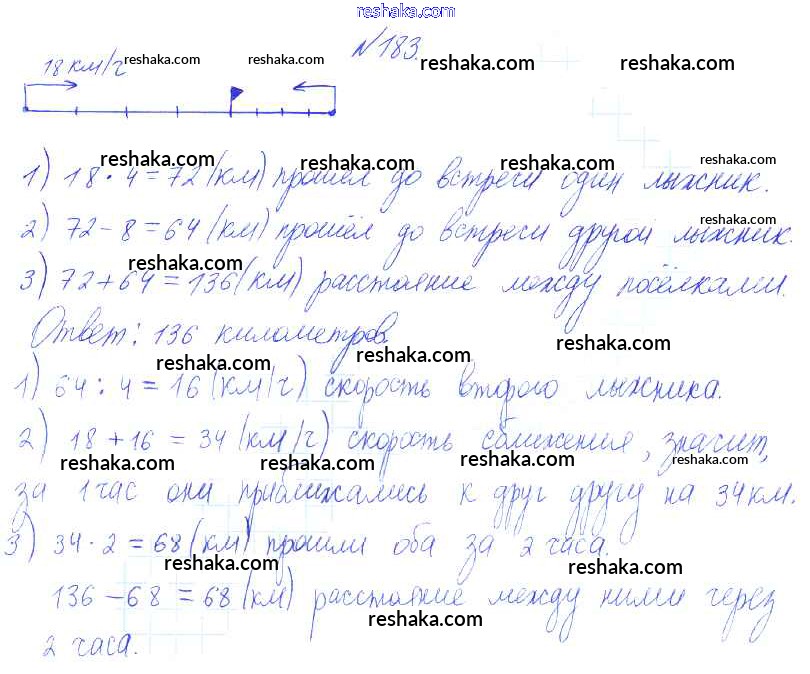 reshaka.com
№183.
18 км/ч reshaka.com reshaka.com reshaka.com reshaka.com
reshaka.com reshaka.com reshaka.com
1) 18 · 4 = 72 (км) прошёл до встречи один лыжник.
reshaka.com reshaka.com reshaka.com
2) 72 - 8 = 64 (км) прошёл до встречи другой лыжник.
reshaka.com reshaka.com reshaka.com
3) 72 + 64 = 136 (км) расстояние между посёлками.
Ответ: 136 километров.
reshaka.com reshaka.com reshaka.com
1) 64 : 4 = 16 (км/ч) скорость второго лыжника.
2) 18 + 16 = 34 (км/ч) скорость сближения, значит,
reshaka.com reshaka.com reshaka.com reshaka.com
за 1 час они приближались к друг другу на 34 км.
3) 34 · 2 = 68 (км) прошли оба за 2 часа.
reshaka.com reshaka.com reshaka.com
136 - 68 = 68 (км) расстояние между ними через
reshaka.com reshaka.com reshaka.com
2 часа.